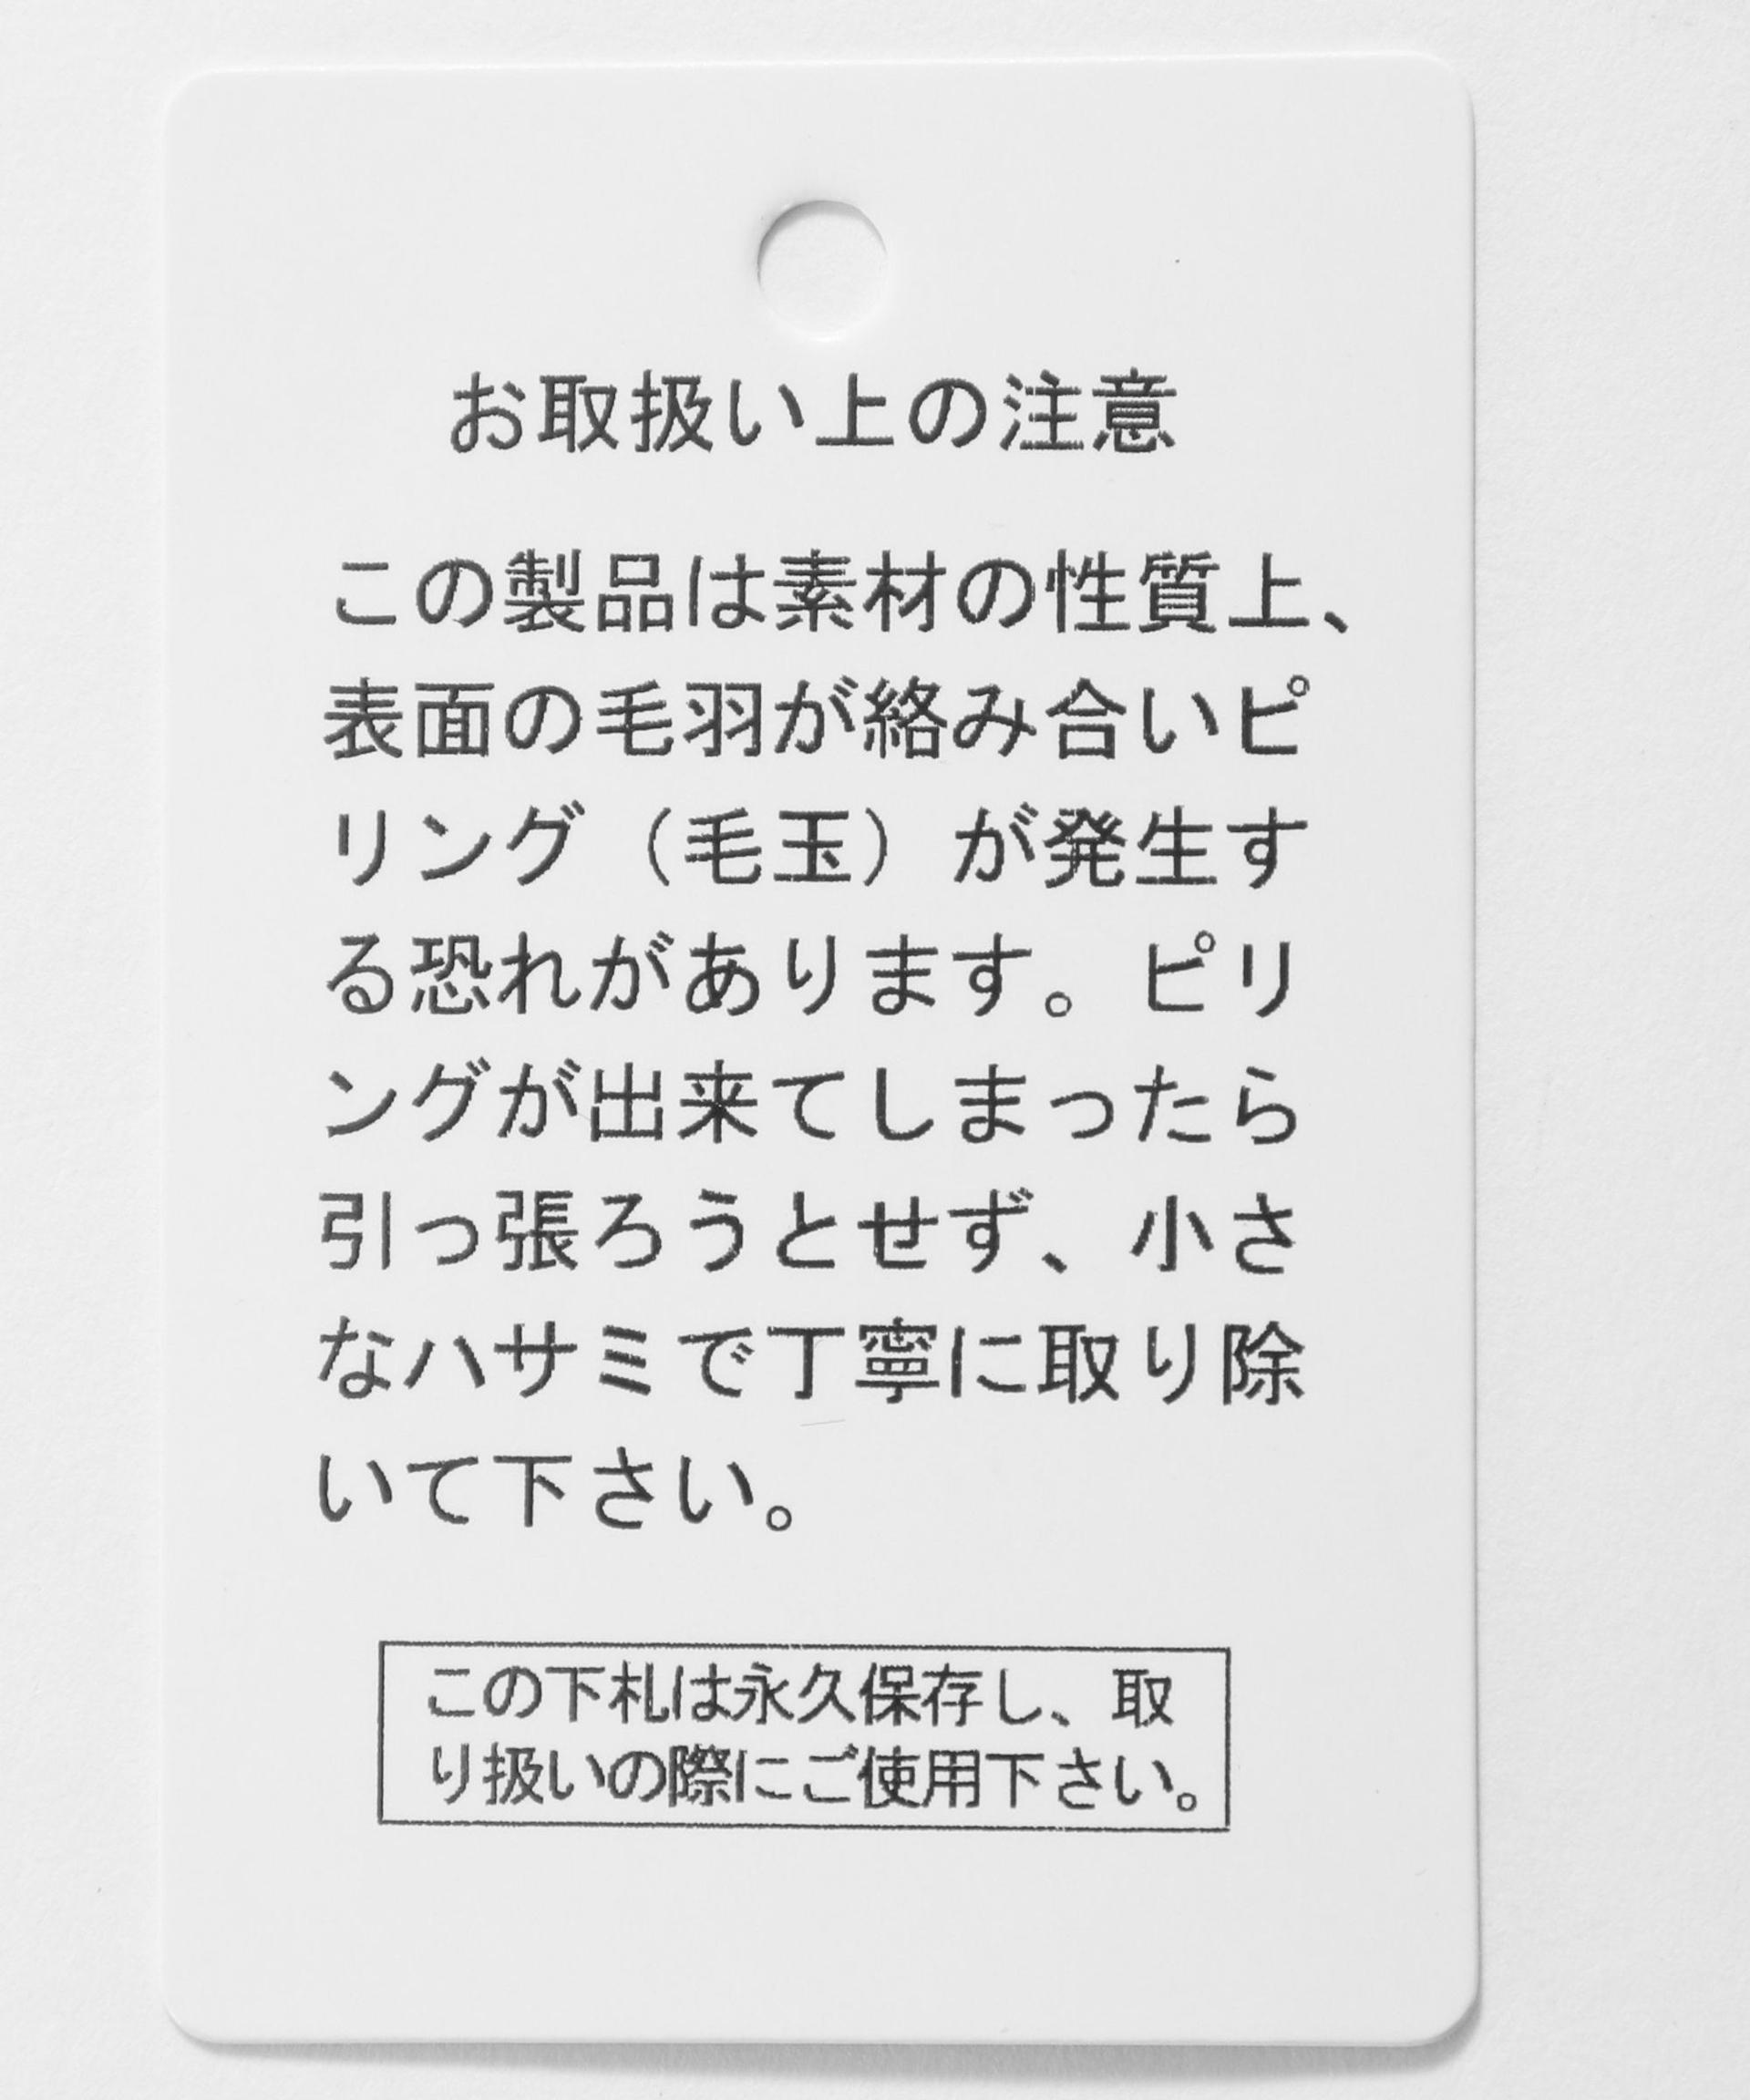 お取扱い上の注意
この製品は素材の性質上、
表面の毛羽が絡み合いピ
リング（毛玉）が発生す
る恐れがあります。ピリ
ングが出来てしまったら
引っ張ろうとせず、小さ
なハサミで丁寧に取り除
いて下さい。
この下札は永久保存し、取
り扱いの際にご使用下さい。